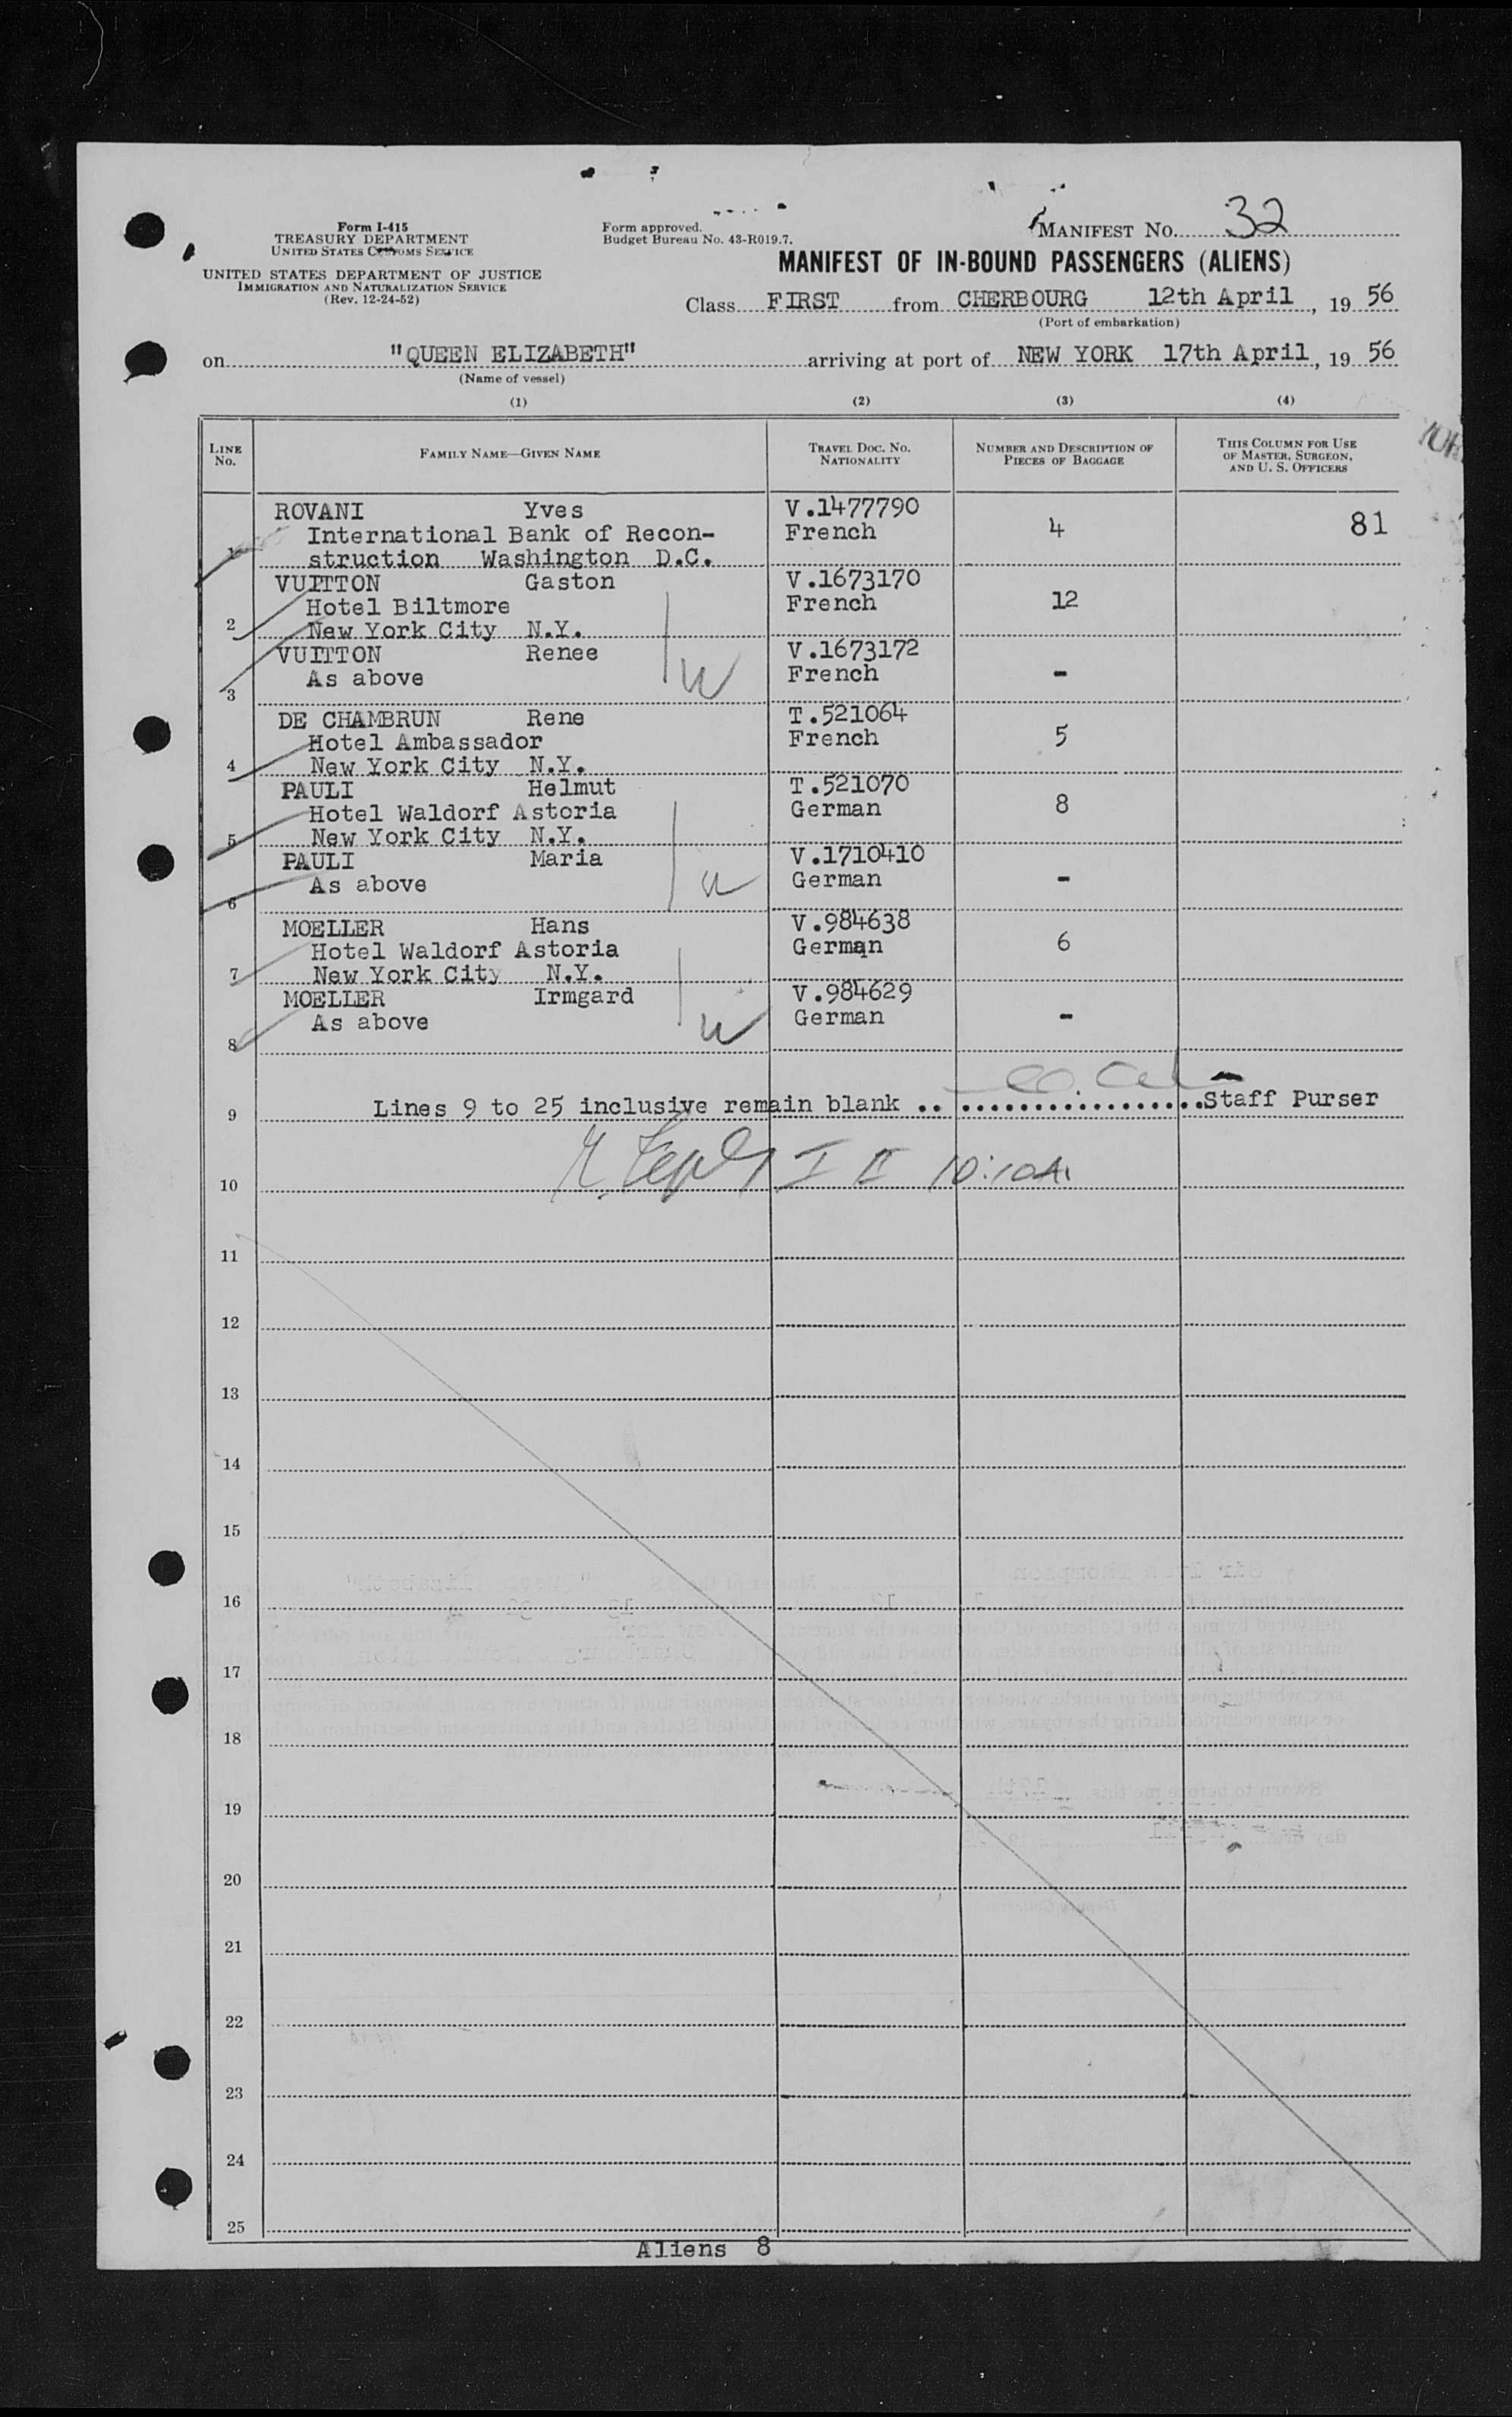 Form I-415
TREASURY DEPARTMENT
UNITED STATES CUSTOMS SERVICE
UNITED STATES DEPARTMENT OF JUSTICE
IMMIGRATION AND NATURALIZATION SERVICE
(Rev. 12-24-52)
Form approved.
Budget Bureau No. 43-R019.7.
MANIFEST NO. 32
MANIFEST OF IN-BOUND PASSENGERS (ALIENS)
Class FIRST from CHERBOURG 12th April, 19 56
(Port of embarkation)
on "QUEEN ELIZABETH" arriving at port of NEW YORK 17th April, 19 56
(Name of vessel)
(1) (2) (3) (4)
LINE NO. FAMILY NAME—GIVEN NAME TRAVEL DOC. NO. NATIONALITY NUMBER AND DESCRIPTION OF PIECES OF BAGGAGE THIS COLUMN FOR USE OF MASTER, SURGEON, AND U. S. OFFICERS
ROVANI Yves V.1477790
International Bank of Recon- French 4 81
1 struction Washington D.C.
VUITTON Gaston V.1673170
Hotel Biltmore French 12
2 New York City N.Y.
VUITTON Renee V.1673172
As above French -
3
DE CHAMBRUN Rene T.521064
Hotel Ambassador French 5
4 New York City N.Y.
PAULI Helmut T.521070
Hotel Waldorf Astoria German 8
5 New York City N.Y.
PAULI Maria V.1710410
As above German -
6
MOELLER Hans V.984638
Hotel Waldorf Astoria German 6
7 New York City N.Y.
MOELLER Irmgard V.984629
As above German -
8
9 Lines 9 to 25 inclusive remain blank .. ..................Staff Purser
10
11
12
13
14
15
16
17
18
19
20
21
22
23
24
25
Aliens 8